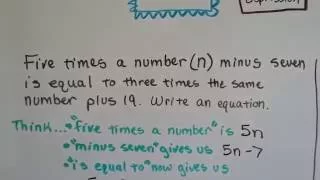 Expression
Five times a number (n) minus seven
is equal to three times the same
number plus 19. Write an equation.
Think... "five times a number" is 5n
"minus seven" gives us 5n -7
"is equal to" now gives us